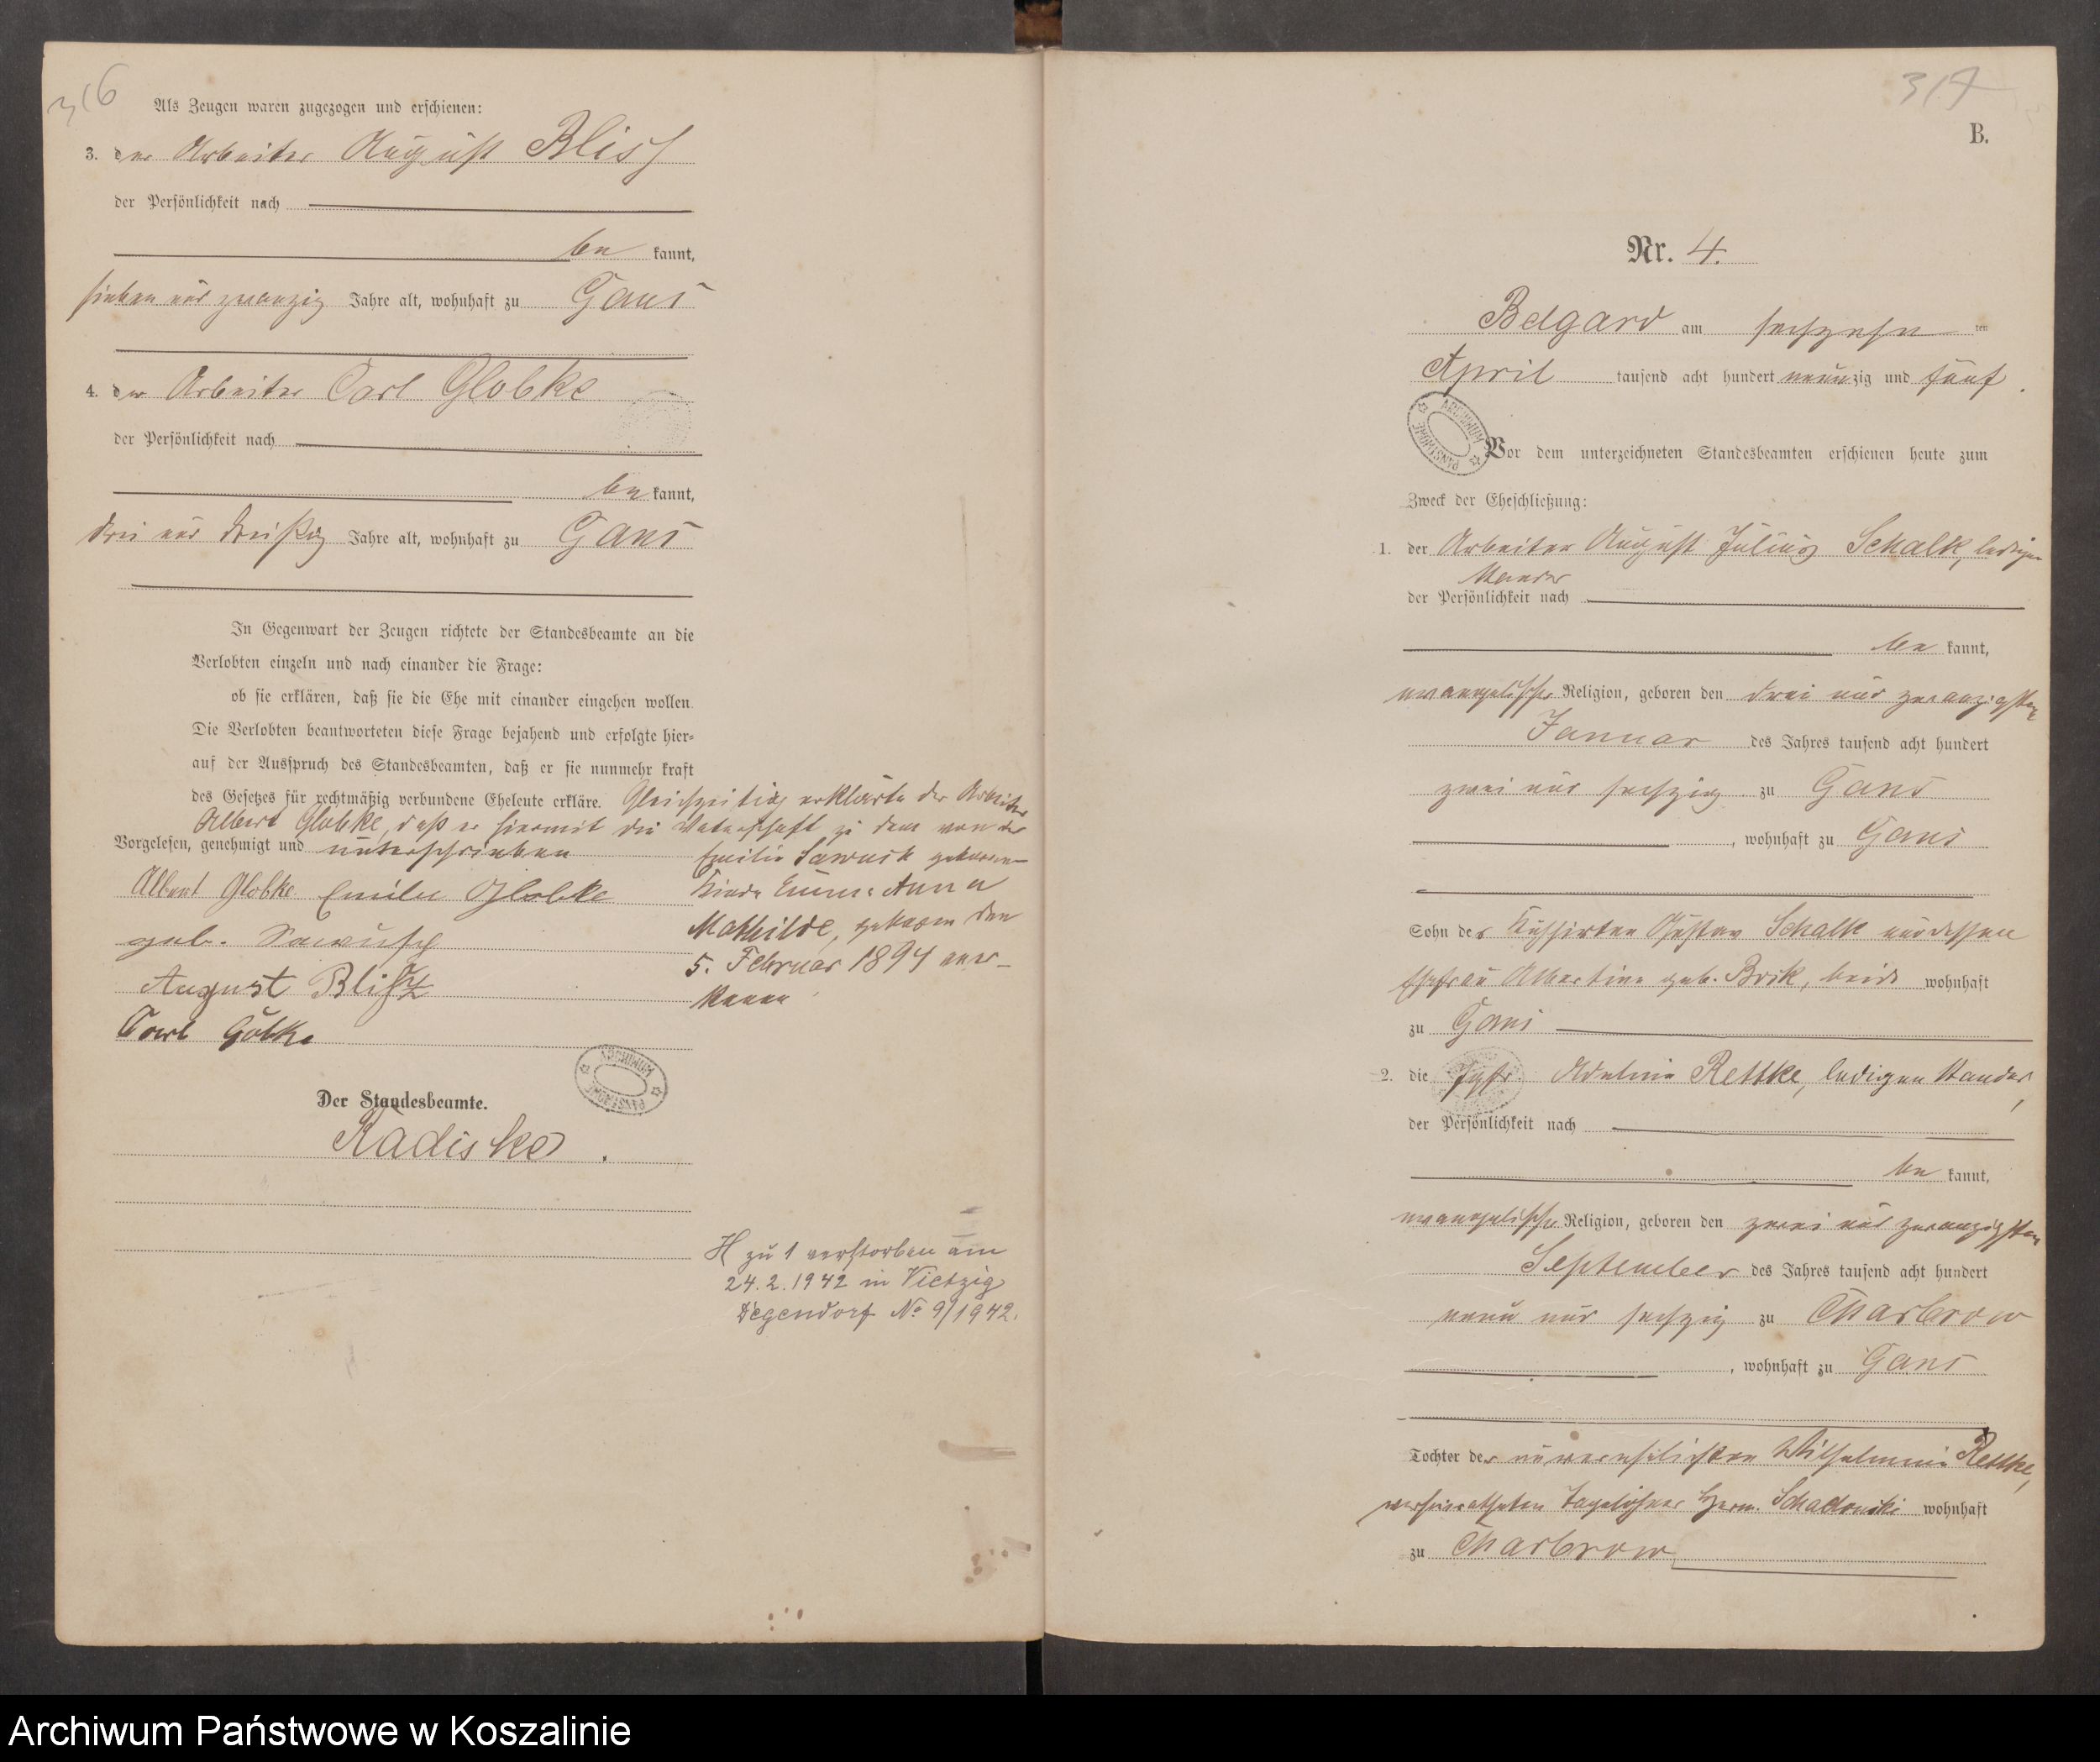 316
Als Zeugen waren zugezogen und erschienen:
3. der Arbeiter August Blisz
der Persönlichkeit nach
be kannt,
sieben und zwanzig Jahre alt, wohnhaft zu Gans
4. der Arbeiter Carl Globke
der Persönlichkeit nach
be kannt,
drei und dreißig Jahre alt, wohnhaft zu Gans
In Gegenwart der Zeugen richtete der Standesbeamte an die
Verlobten einzeln und nach einander die Frage:
ob sie erklären, daß sie die Ehe mit einander eingehen wollen.
Die Verlobten beantworteten diese Frage bejahend und erfolgte hier-
auf der Ausspruch des Standesbeamten, daß er sie nunmehr kraft
des Gesetzes für rechtmäßig verbundene Eheleute erkläre. Gleichzeitig erklärte der Arbeiter
Albert Globke, daß er hiermit die Vaterschaft zu dem von der
Emilie Sawusch geborenen
Kinde Emma Anna
Mathilde, geboren den
5. Februar 1894 aner-
kenne
Vorgelesen, genehmigt und unterschrieben
Albert Globke Emilie Globke
geb. Sawusch
August Blisz
Carl Gobke
Der Standesbeamte.
Radiske.
H zu 1 verstorben am
24.2.1942 in Vietzig
Degendorf No 9/1942.
317
B.
Nr. 4.
Belgard am sechszehn ten
April tausend acht hundert neunzig und fünf.
Vor dem unterzeichneten Standesbeamten erschienen heute zum
Zweck der Eheschließung:
1. der Arbeiter August Julius Schalk, ledigen
Standes
der Persönlichkeit nach
be kannt,
evangelischer Religion, geboren den drei und zwanzigsten
Januar des Jahres tausend acht hundert
zwei und sechzig zu Gans
, wohnhaft zu Gans
Sohn des Gustav Schalk und dessen
Ehefrau Albertine geb. Brik, beide wohnhaft
zu Gans
2. die Jgfr. Adeline Rettke, ledigen Standes,
der Persönlichkeit nach
be kannt,
evangelischer Religion, geboren den zwei und zwanzigsten
September des Jahres tausend acht hundert
neun und sechzig zu Charbrow
, wohnhaft zu Gans
Tochter der unverehelichten Wilhelmine Rettke,
verheiratheten Tagelöhner Herm. wohnhaft
zu Charbrow
ARCHIWUM PAŃSTWOWE
Archiwum Państwowe w Koszalinie